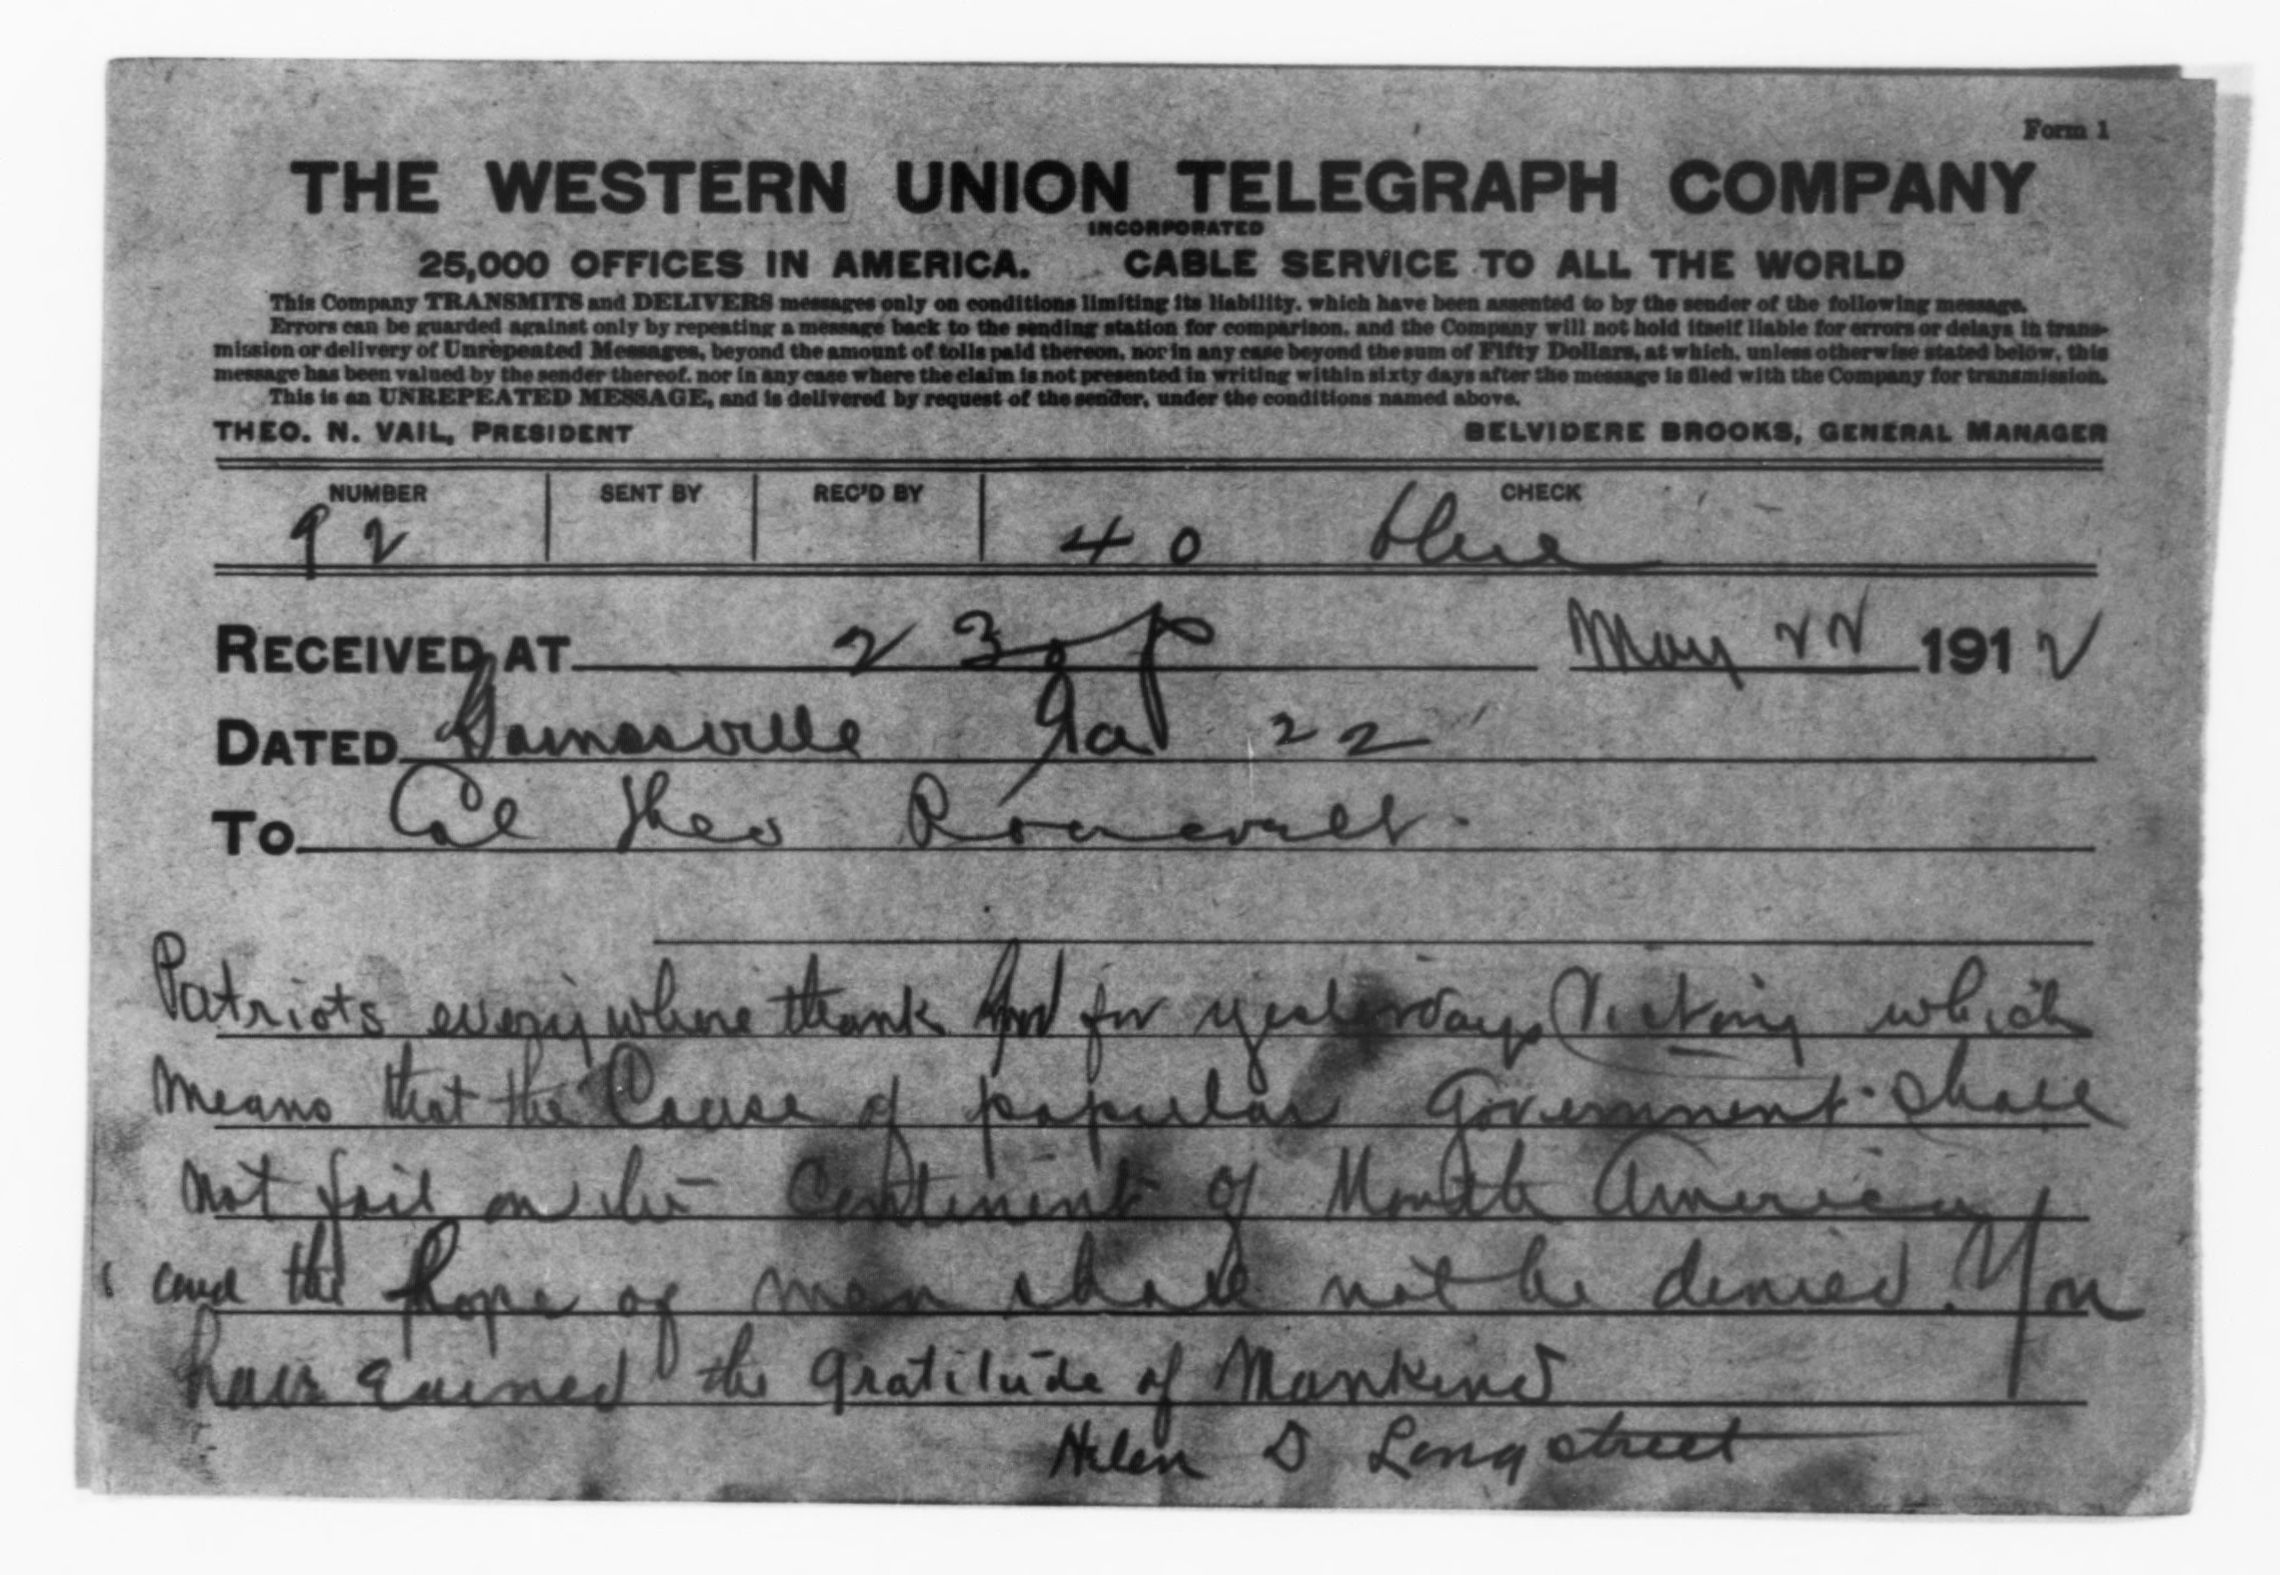 Form 1
THE WESTERN UNION TELEGRAPH COMPANY
INCORPORATED
25,000 OFFICES IN AMERICA. CABLE SERVICE TO ALL THE WORLD
This Company TRANSMITS and DELIVERS messages only on conditions limiting its liability, which have been assented to by the sender of the following message.
Errors can be guarded against only by repeating a message back to the sending station for comparison, and the Company will not hold itself liable for errors or delays in trans-
mission or delivery of Unrepeated Messages, beyond the amount of tolls paid thereon, nor in any case beyond the sum of Fifty Dollars, at which, unless otherwise stated below, this
message has been valued by the sender thereof, nor in any case where the claim is not presented in writing within sixty days after the message is filed with the Company for transmission.
This is an UNREPEATED MESSAGE, and is delivered by request of the sender, under the conditions named above.
THEO. N. VAIL, PRESIDENT BELVIDERE BROOKS, GENERAL MANAGER
NUMBER SENT BY REC'D BY CHECK
92 40 blue
RECEIVED AT 230p May 22 1912
DATED Gainesville Ga 22
TO Col Theo Roosevelt
Patriots everywhere thank God for yesterdays Victory which
means that the Cause of popular Government shall
not fail on the Continent of North America
and the hope of men shall not be denied. You
have earned the gratitude of Mankind
Helen D Longstreet